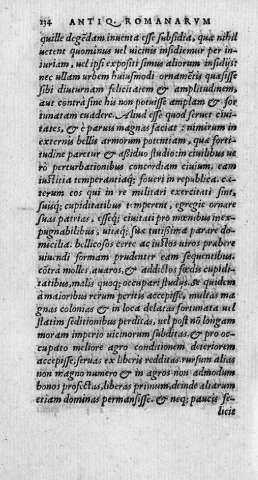 134 ANTIQ. ROMANARVM
quille degēdam inuenta esse subsidia, quæ nihil
uetent quominus uel uicinis insidiemur per in-
iuriam, uel ipsi expositi simus aliorum insidijs:
nec ullam urbem huiusmodi ornamētis quæsisse
sibi diuturnam felicitatem & amplitudinem,
aut contra sine his non potuisse amplam & for
tunatam euadere. Aliud esse quod seruet ciui-
tates, & è paruis magnas faciat: nimirum in
externis bellis armorum potentiam, quæ forti-
tudine paretur & assiduo studio: in ciuilibus ue
rò perturbationibus concordiam ciuium, eam
iustitia temperantiaq; foueri in republica. cæ-
terum eos qui in re militari exercitati sint,
suisq; cupiditatibus temperent, egregiè ornare
suas patrias, esseq; ciuitati pro mœnibus inex-
pugnabilibus, uitaq; suæ tutissima parare do-
micilia. bellicosos certe ac iustos uiros prabere
uiuendi formam prudenter eam sequentibus.
cōtra molles, auaros, & addictos fœdis cupidi-
tatibus, malis quoq; occupari studijs. Se quidem
à maioribus rerum peritis accepisse, multas ma
gnas colonias & in loca delatas fortunata uel
statim seditionibus perditas, uel post nō longam
moram imperio uicinorum subditas & pro oc-
cupato meliore agro conditionem deteriorem
accepisse, seruas ex liberis redditas. rursum alias
non magno numero & in agros non admodum
bonos profectas, liberas primum, deinde aliarum
etiam dominas permansisse. & neq; paucis fe-
licis